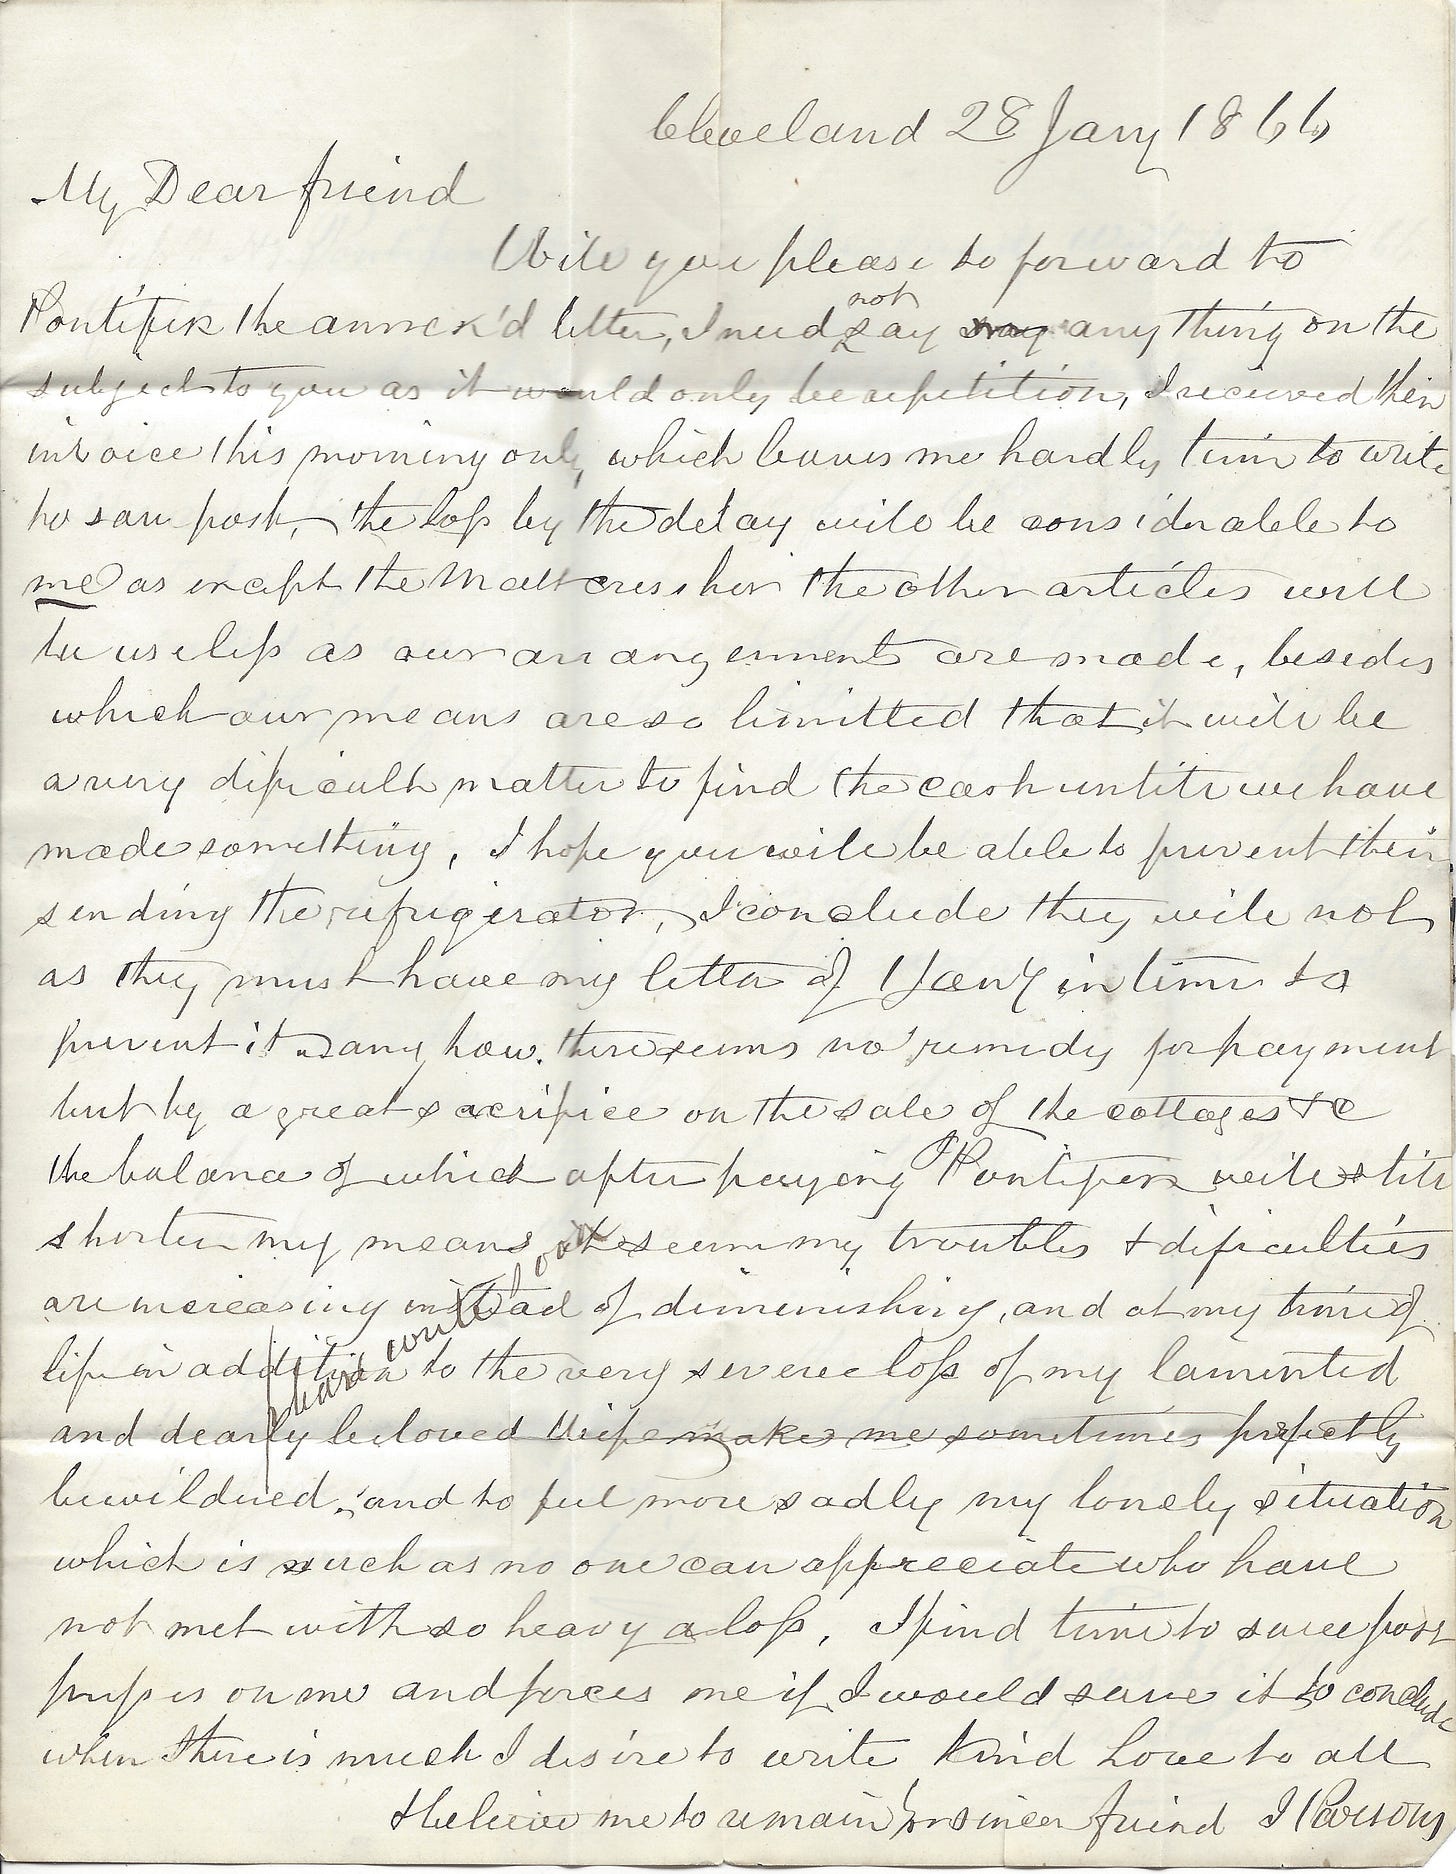 Cleveland 28 Jany 1866
My Dear friend
Will you please to forward to
Pontifix the annex'd letter, I need not say any thing on the
subject to you as it would only be repetition, I received their
invoice this morning only, which leaves me hardly time to write
to save post, the loss by the delay will be considerable to
me as except the Matt the other articles will
be useless as our arrangements are made, besides
which our means are so limitted that it will be
a very dificult matter to find the cash until we have
made something, I hope you will be able to prevent their
sending the refrigerator, I conclude they will not
as they must have my letter of 1 Jany in time to
prevent it any how. there seems no remedy for payment
but by a great sacrifice on the sale of the cottages &c
the balance of which after paying Pontifix will still
shorten my means seem my troubles & dificulties
are increasing instead of diminishing, and at my time of
life in addition to the very severe loss of my lamented
and dearly beloved Wife makes me sometimes perfectly
bewildered, and to feel more sadly my lonely situation
which is such as no one can appreciate who have
not met with so heavy a loss, I find time to save post
presses on me and forces me if I would save it to conclude
when there is much I desire to write Kind Love to all
& believe me to remain yr sincer friend I Parsons
hard work